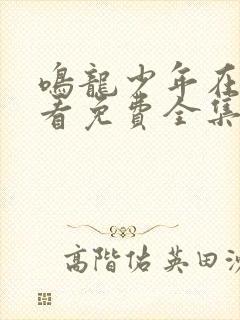 鳴龍少年在
看免費全集
高階佑英田